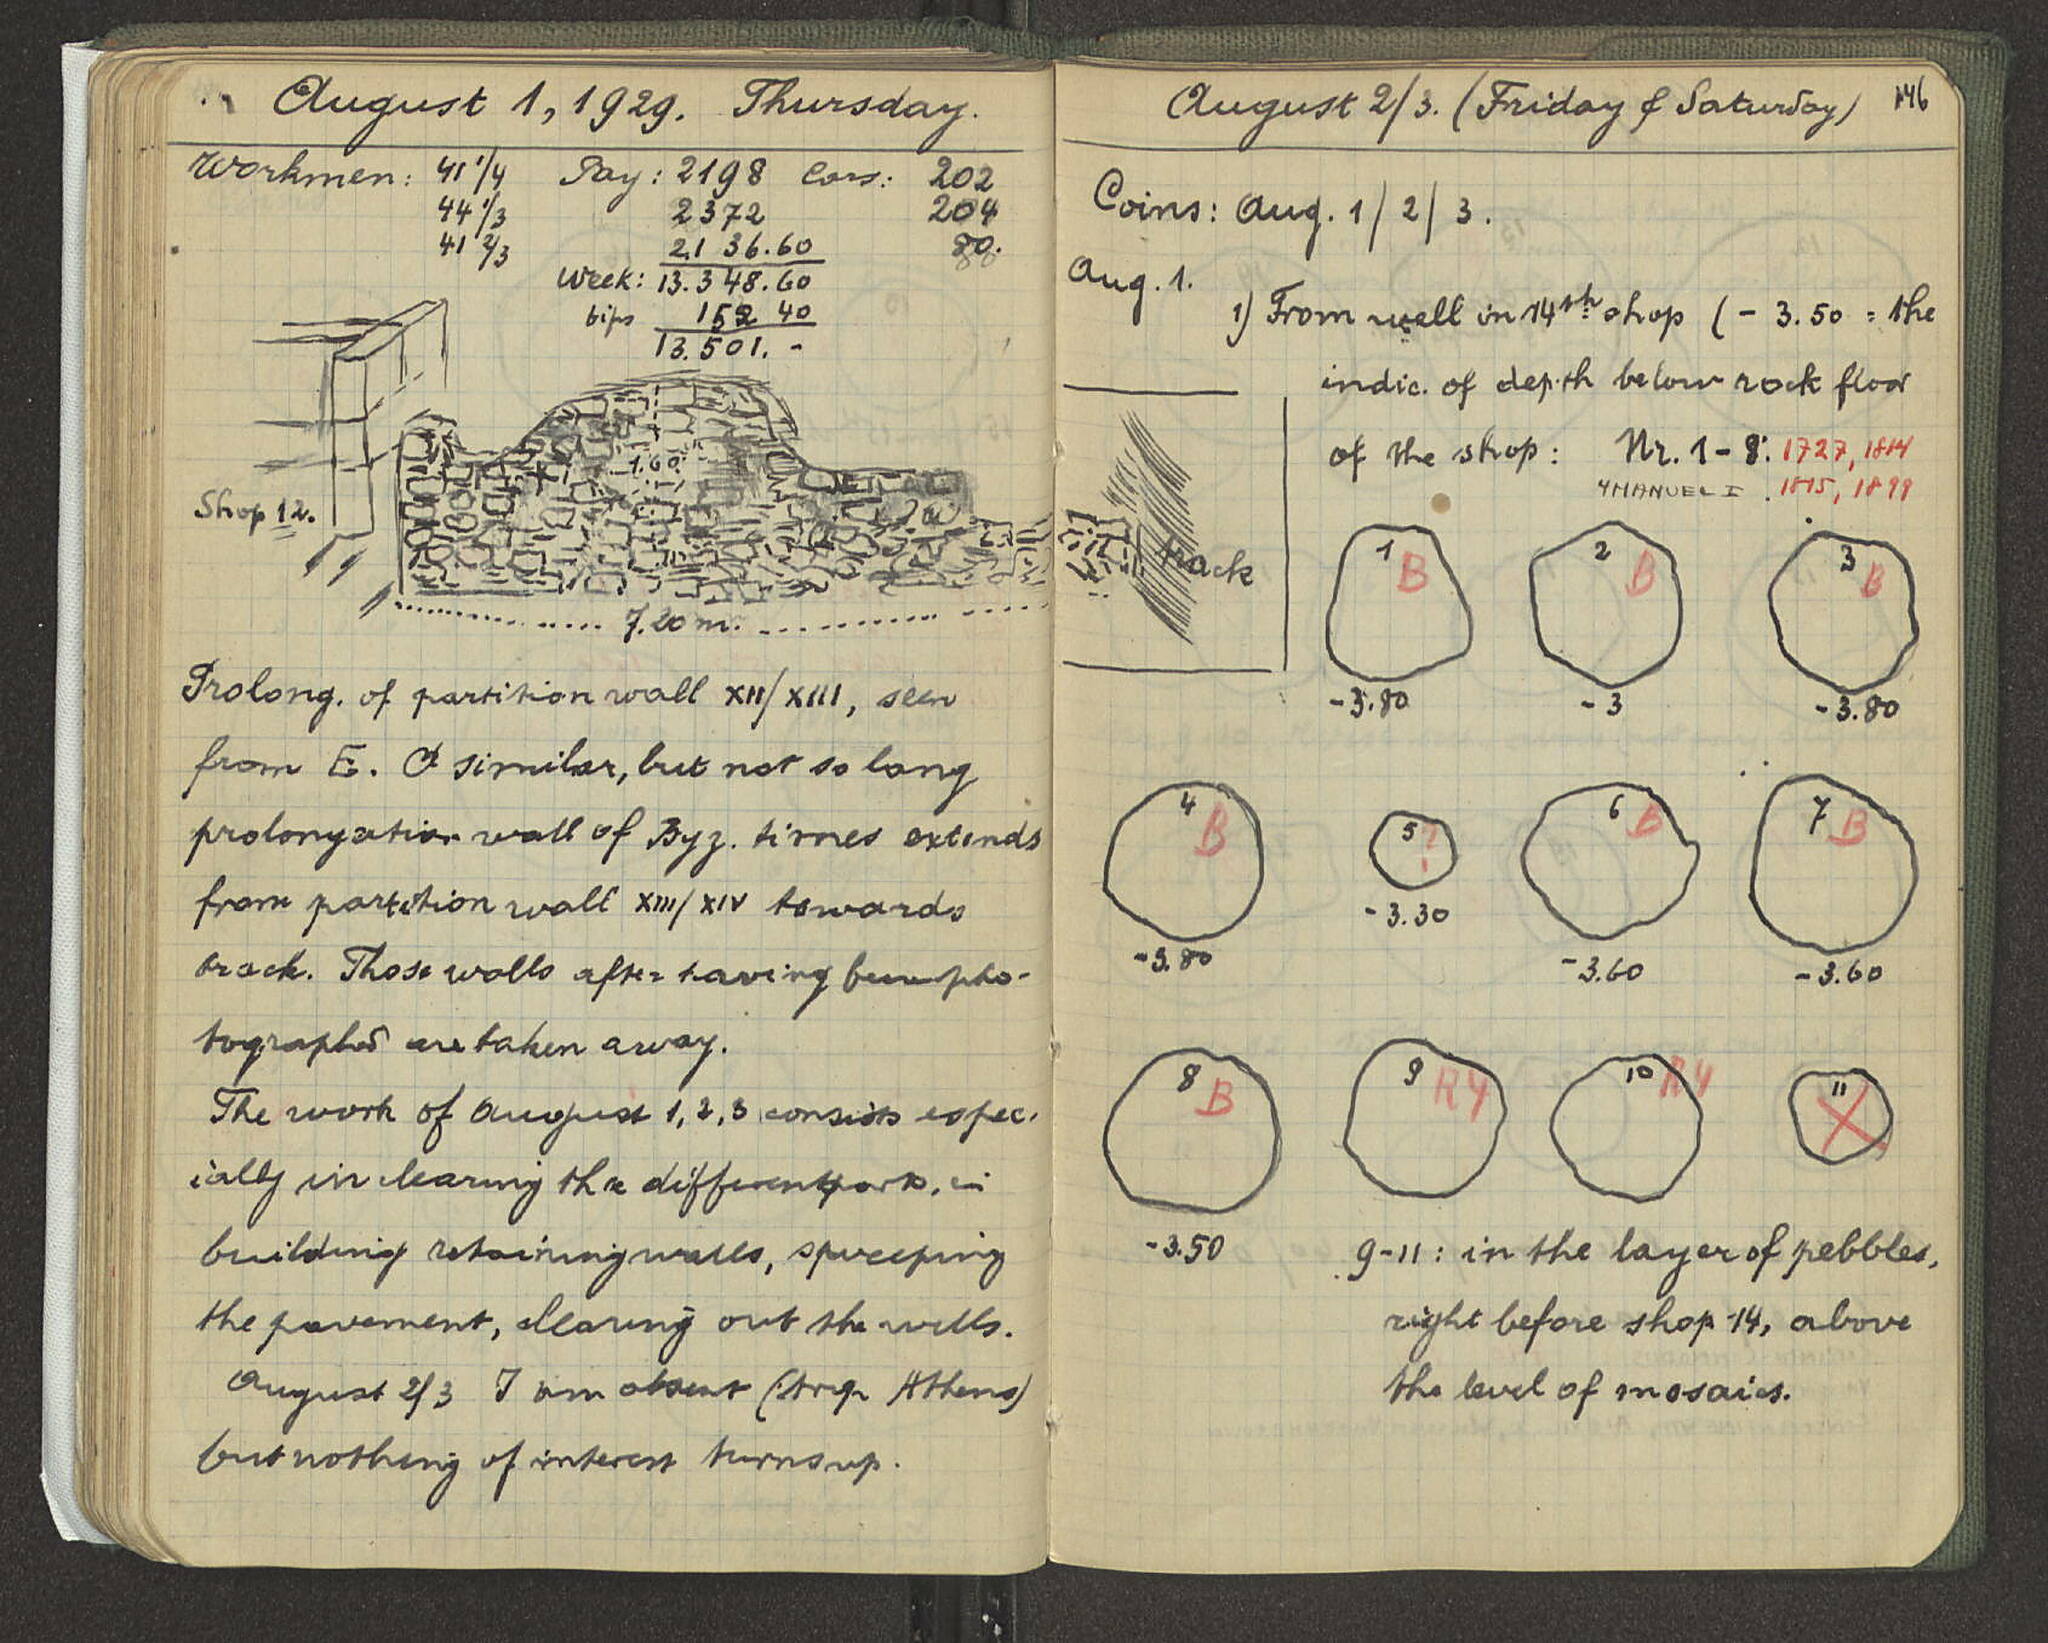 August 1, 1929. Thursday.
Workmen: 41 1/4 Pay: 2198 Cars: 202
44 1/3 2372 204
41 2/3 2136.60 80.
Week: 13.348.60
tips 152 40
13.501. -
1.60
Shop 12.
7.20 m.
Prolong. of partition wall XII/XIII, seen
from E. A similar, but not so long
prolongation wall of Byz. times extends
from partition wall XIII/XIV towards
track. Those walls after having been pho-
tographed are taken away.
The work of August 1, 2, 3 consists espec-
ially in clearing the different parts, in
building retaining walls, sweeping
the pavement, clearing out the wells.
August 2/3 I am absent (trip Athens)
but nothing of interest turns up.
August 2/3. (Friday & Saturday) 146
Coins: Aug. 1/2/3.
Aug. 1.
1) From well in 14th shop (- 3.50 = the
indic. of depth below rock floor
of the shop: Nr. 1-8: 1727, 1814
4 MANUEL I . 1815, 1899
track
1 B
2 B
3 B
-3.80
-3
-3.80
4 B
5 ?
6 B
7 B
-3.80
-3.30
-3.60
-3.60
8 B
9 R4
10 R4
11 X
-3.50
9-11: in the layer of pebbles,
right before shop 14, above
the level of mosaics.